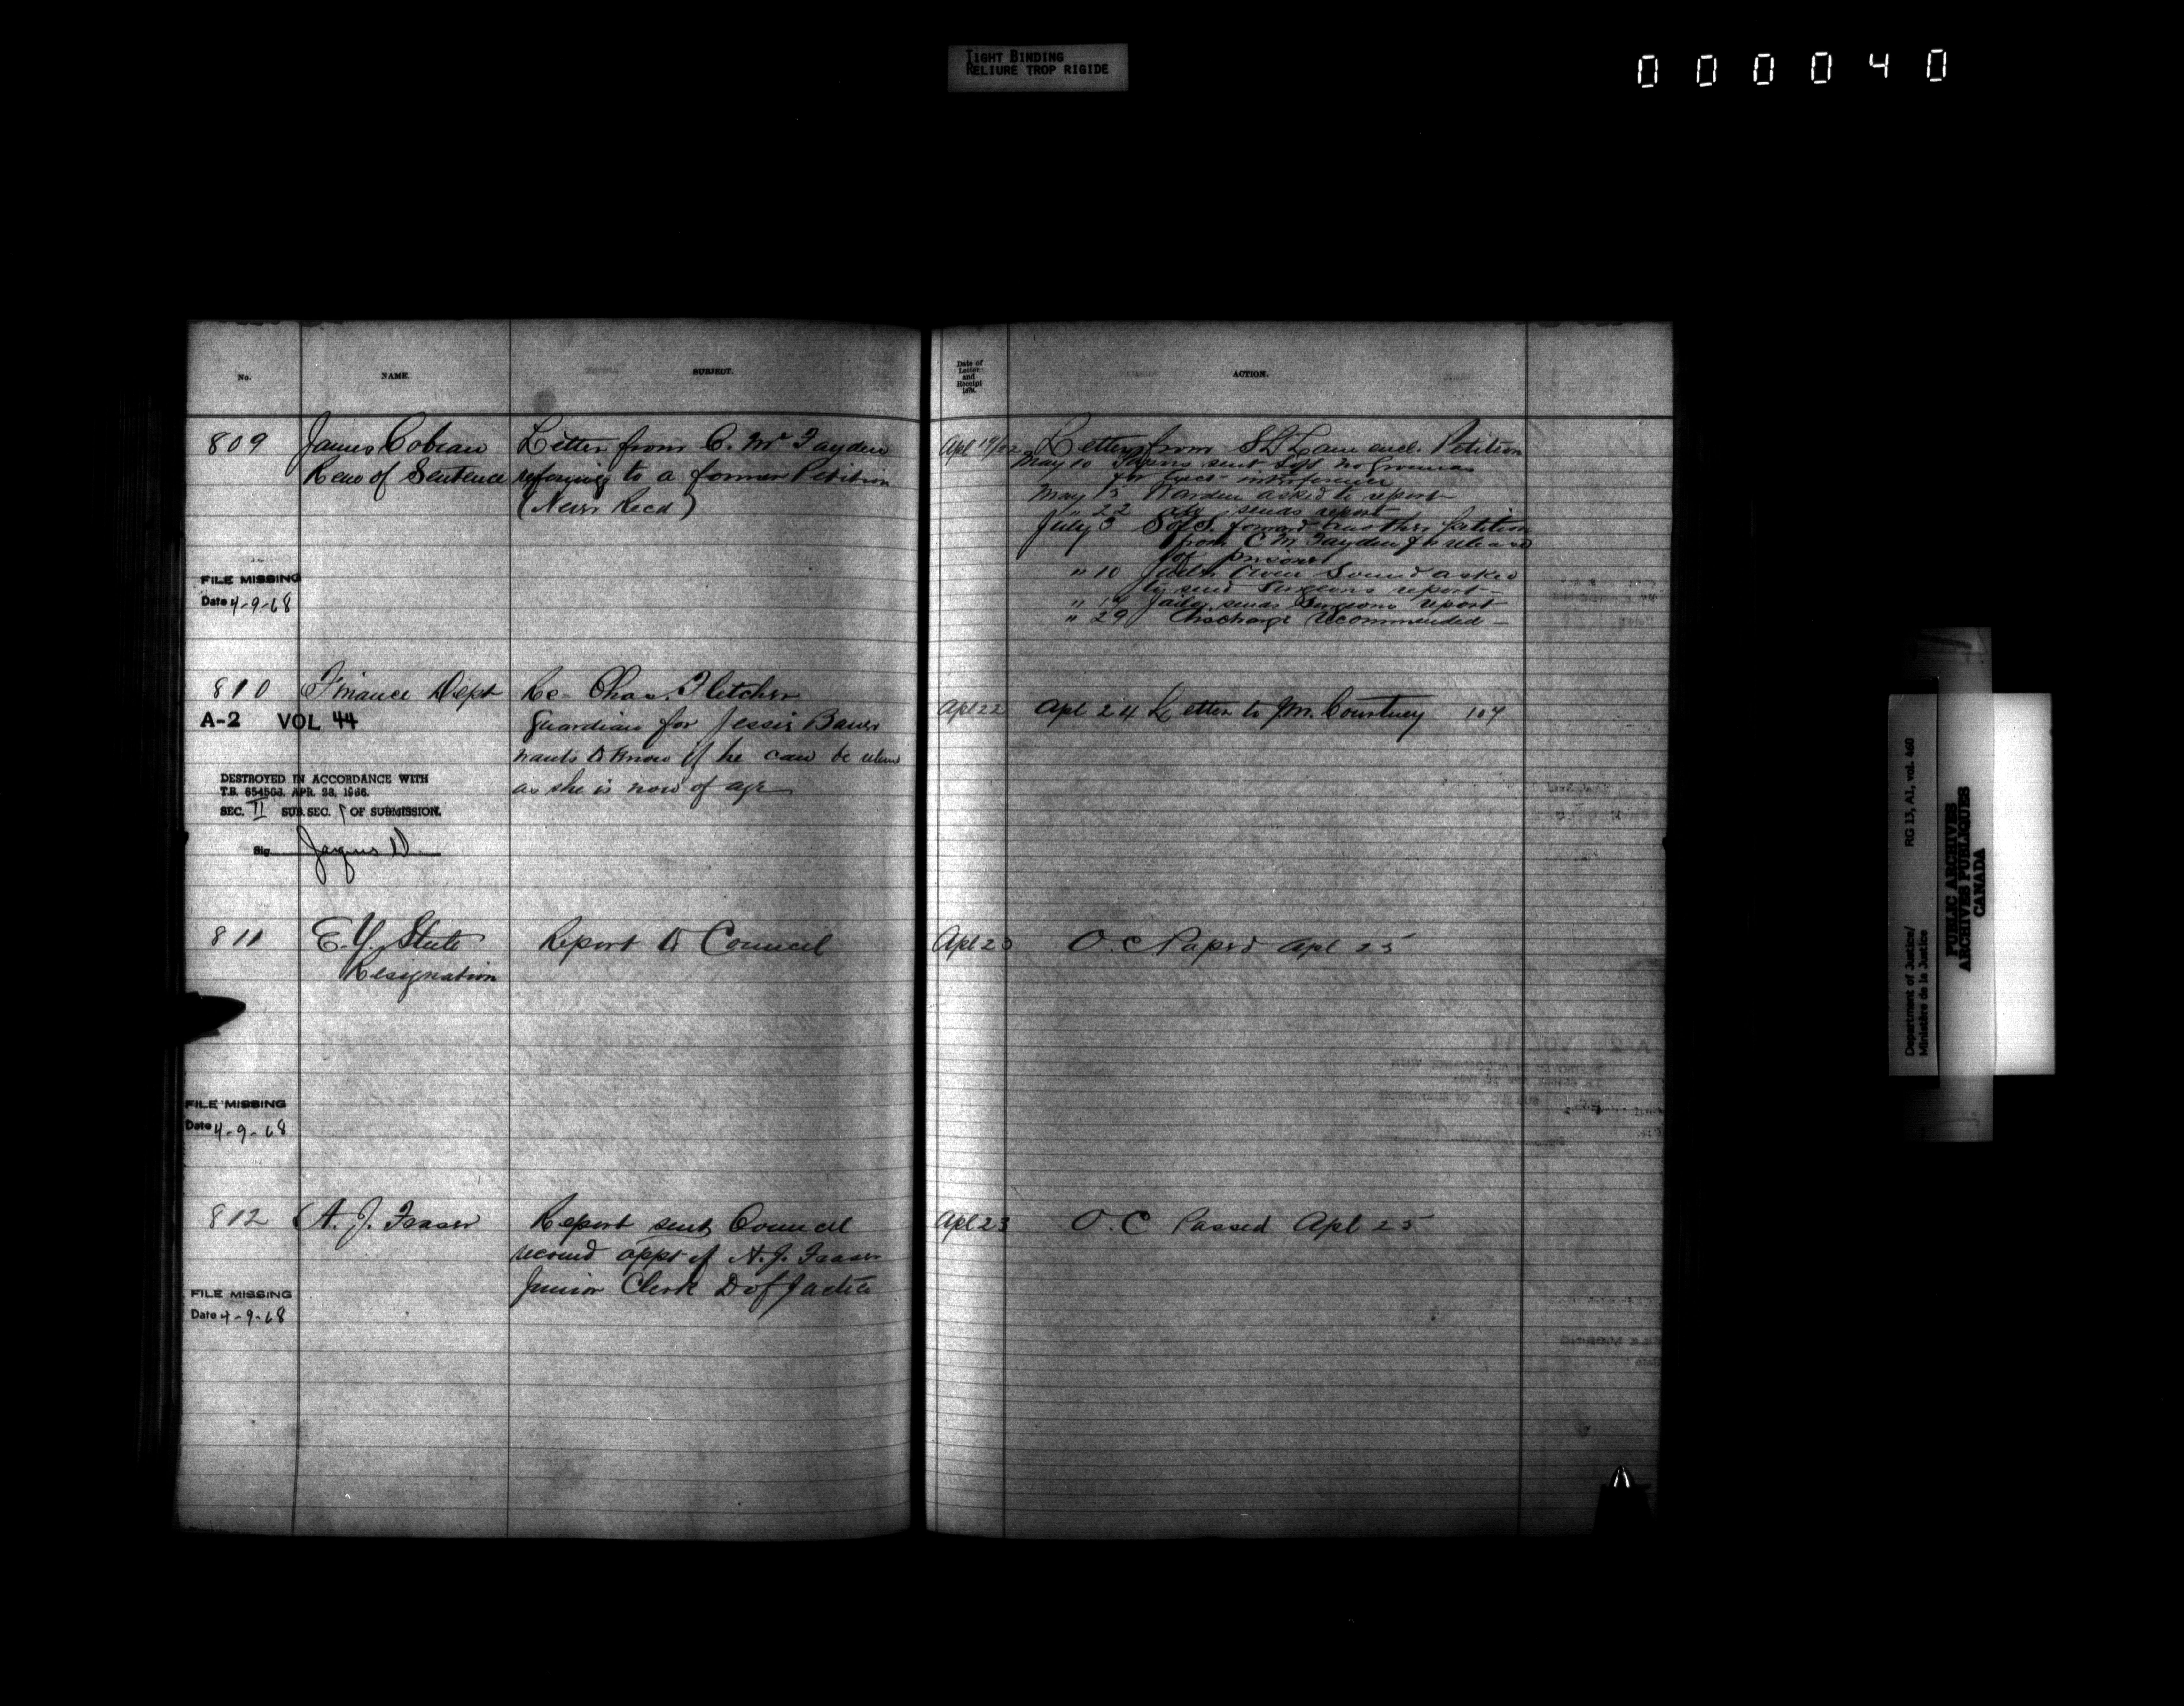 TIGHT BINDING
RELIURE TROP RIGIDE
000040
No.
NAME.
SUBJECT.
Date of
Letter
and
Receipt
ACTION.
809
James
Rem of Sentence
Letter from C. Mc Fayden
referring to a former Petition
(Never Recd)
FILE MISSING
Date 4-9-68
Apl 19/22
Letter from encl. Petition
May 10 Papers sent no grounds
for interference
May 13 Warden asked to report
" 22 sends report
July 3 S of S. forward another petition
from C. Mc Fayden for release
of prisoner
" 10 Jailer Owen Sound asked
to send Surgeons report
" 14 Jailer sends Surgeons report
" 29 Discharge recommended
810
Finance Dept
Re Chas. Fletcher
Guardian for Jessie
wants to know if he can be
as she is now of age
A-2 VOL 44
DESTROYED IN ACCORDANCE WITH
T.B. 654503, APR. 28, 1966.
SEC. II SUB.SEC. OF SUBMISSION.
Sig.
Apl 22
Apl 24 Letter to Mr. Courtney 104
811
E. Y. Steele
Resignation
Report to Council
Apl 23
O. C Apl 25
FILE MISSING
Date 4-9-68
812
A. J. Fraser
Report sent Council
recomd appt of A. J. Fraser
Junior Clerk D of Justice
Apl 23
O. C Passed Apl 25
FILE MISSING
Date 4-9-68
Department of Justice/
Ministère de la Justice
RG 13, A1, vol. 460
PUBLIC ARCHIVES
ARCHIVES PUBLIQUES
CANADA